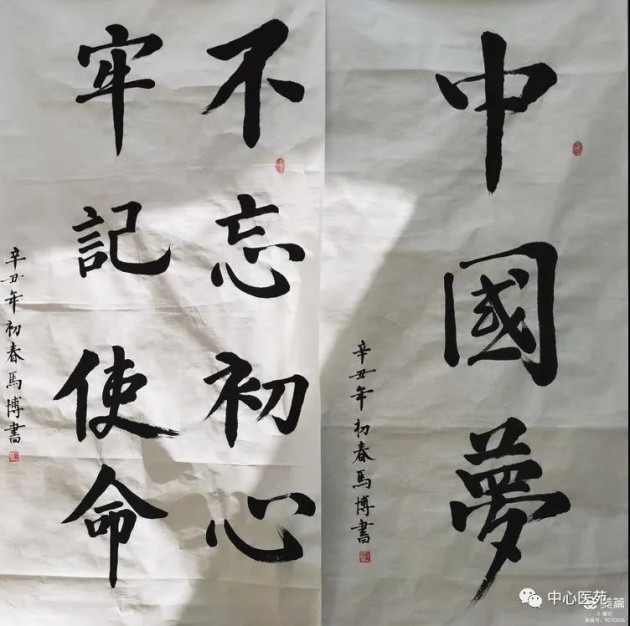 中國夢
辛丑年初春馬博書
不忘初心
牢記使命
辛丑年初春馬博書
中心医苑
美篇